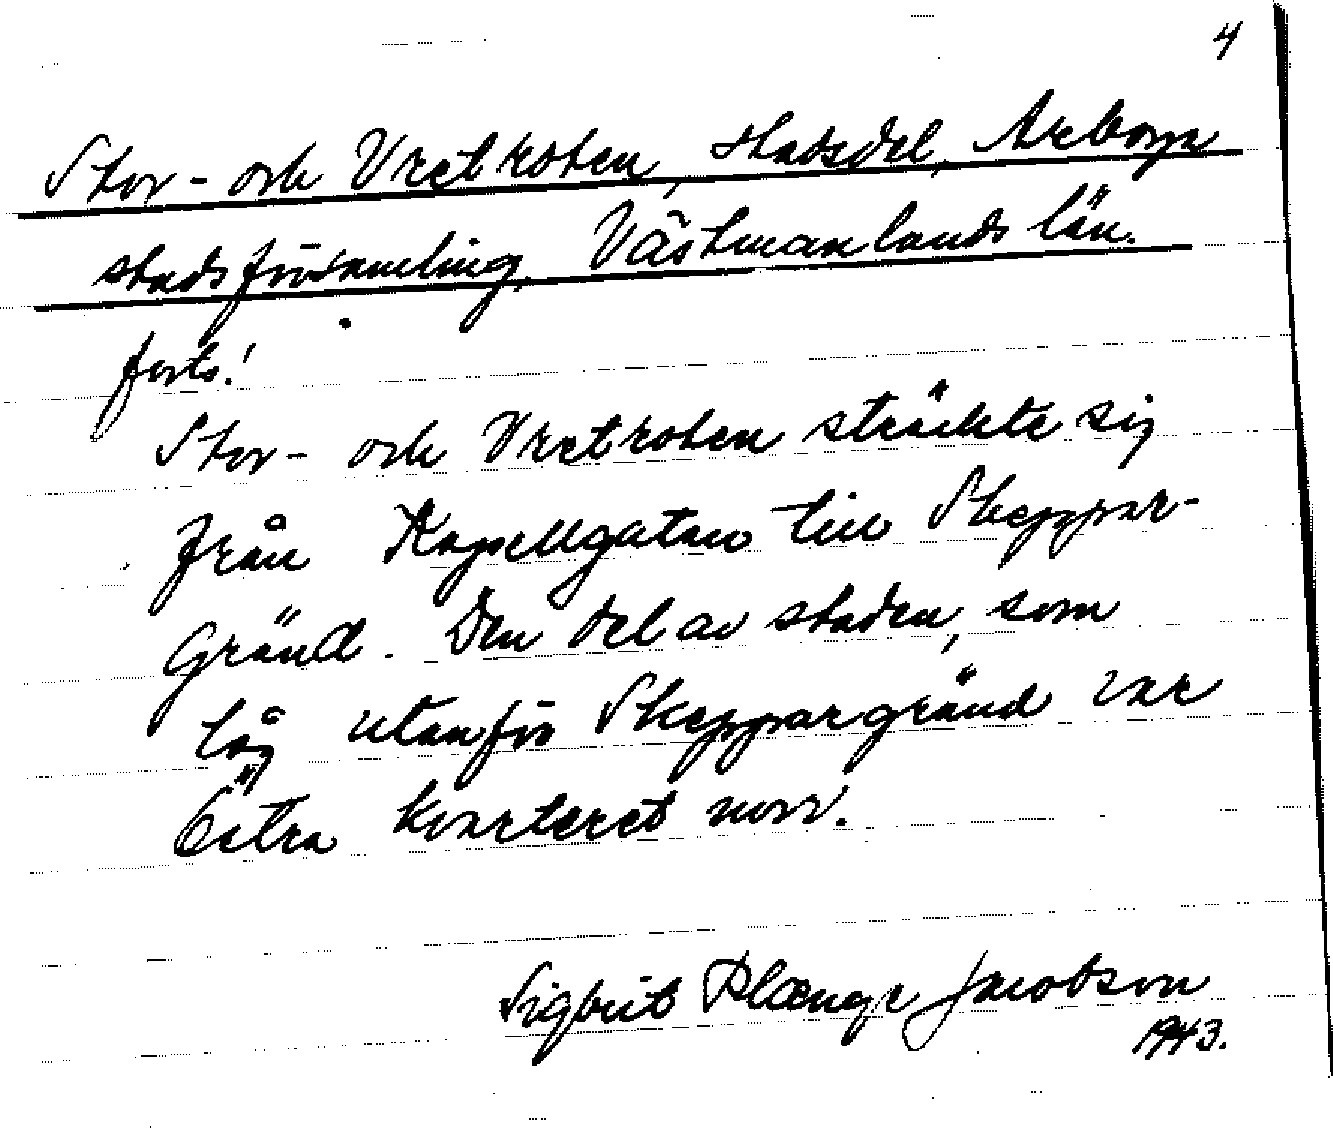 4
Stor- och Vretroten, stadsdel, Arboga
stadsförsamling, Västmanlands län.
forts!
Stor- och Vretroten sträckte sig
från Kapellgatan till Skeppar-
Gränd. Den del av staden, som
låg utanför Skeppargränd var
Östra kvarteret norr.
Sigbrit Plænge Jacobson
1943.